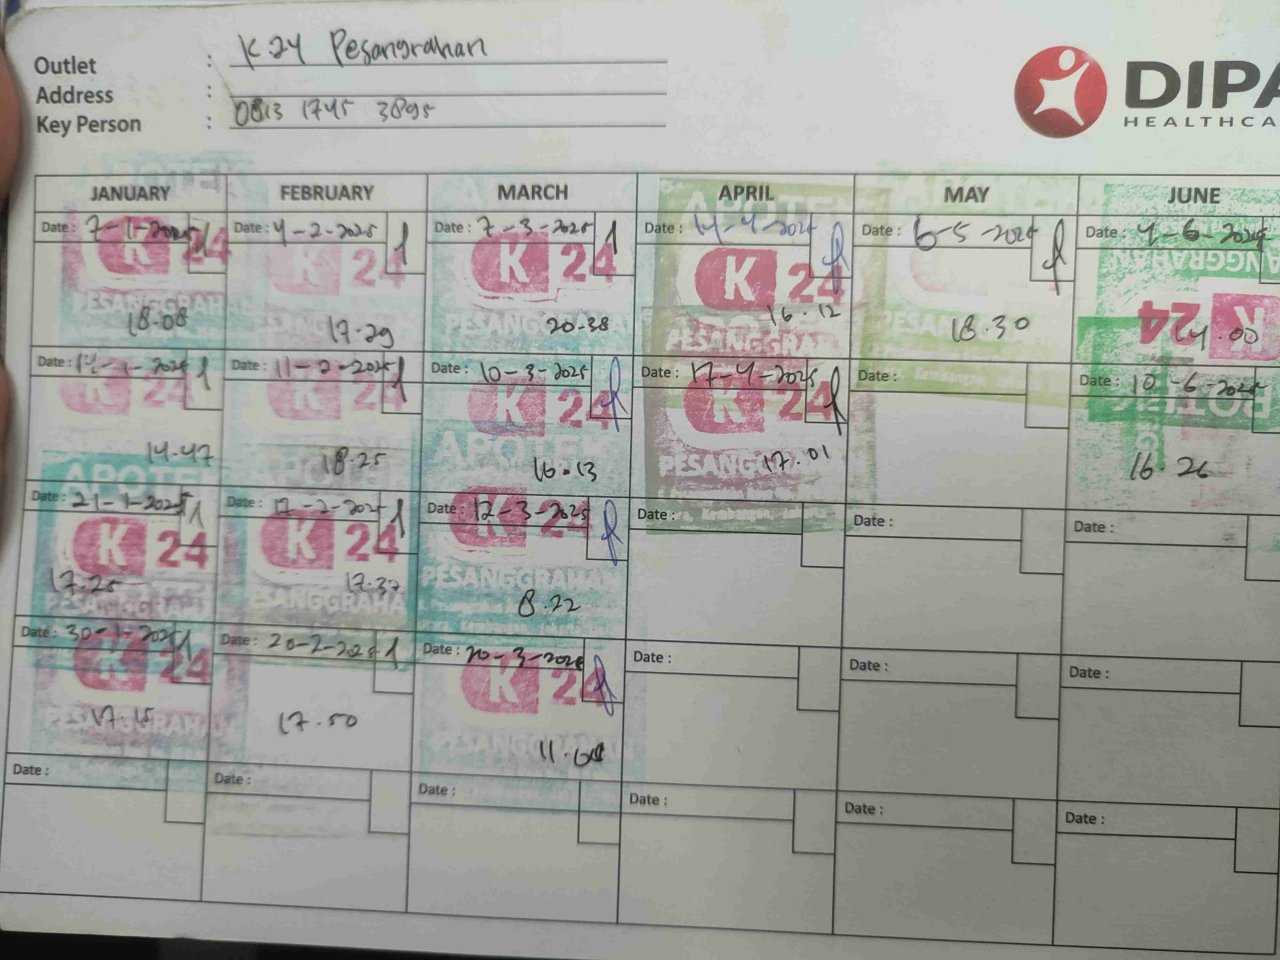 Outlet : K-24 Pesangrahan
Address :
Key Person : 0813 1745 3895
DIPA
HEALTHCA
JANUARY FEBRUARY MARCH APRIL MAY JUNE
Date : 7-1-2025 Date : 4-2-2025 Date : 7-3-2025 Date : 14-4-2025 Date : 6-5-2025 Date : 4-6-2025
K 24 K 24 K 24 K 24 K 24
PESANGGRAHAN PESANGGRAHAN PESANGGRAHAN
18.08 17.29 20.38 16.12 18.30 14.00
Date : 14-1-2025 Date : 11-2-2025 Date : 10-3-2025 Date : 17-4-2025 Date : Date : 10-6-2025
K 24 K 24 K 24 K 24
APOTEK
14.47 18.25 16.13 17.01 16.26
Date : 21-1-2025 Date : 17-2-2025 Date : 12-3-2025 Date : Date : Date :
K 24 K 24 K 24
PESANGGRAHAN
17.25 17.37 8.22
Date : 30-1-2025 Date : 20-2-2025 Date : 20-3-2025 Date : Date : Date :
K 24 K 24
PESANGGRAHAN
17.15 17.50 11.08
Date : Date : Date : Date : Date : Date :